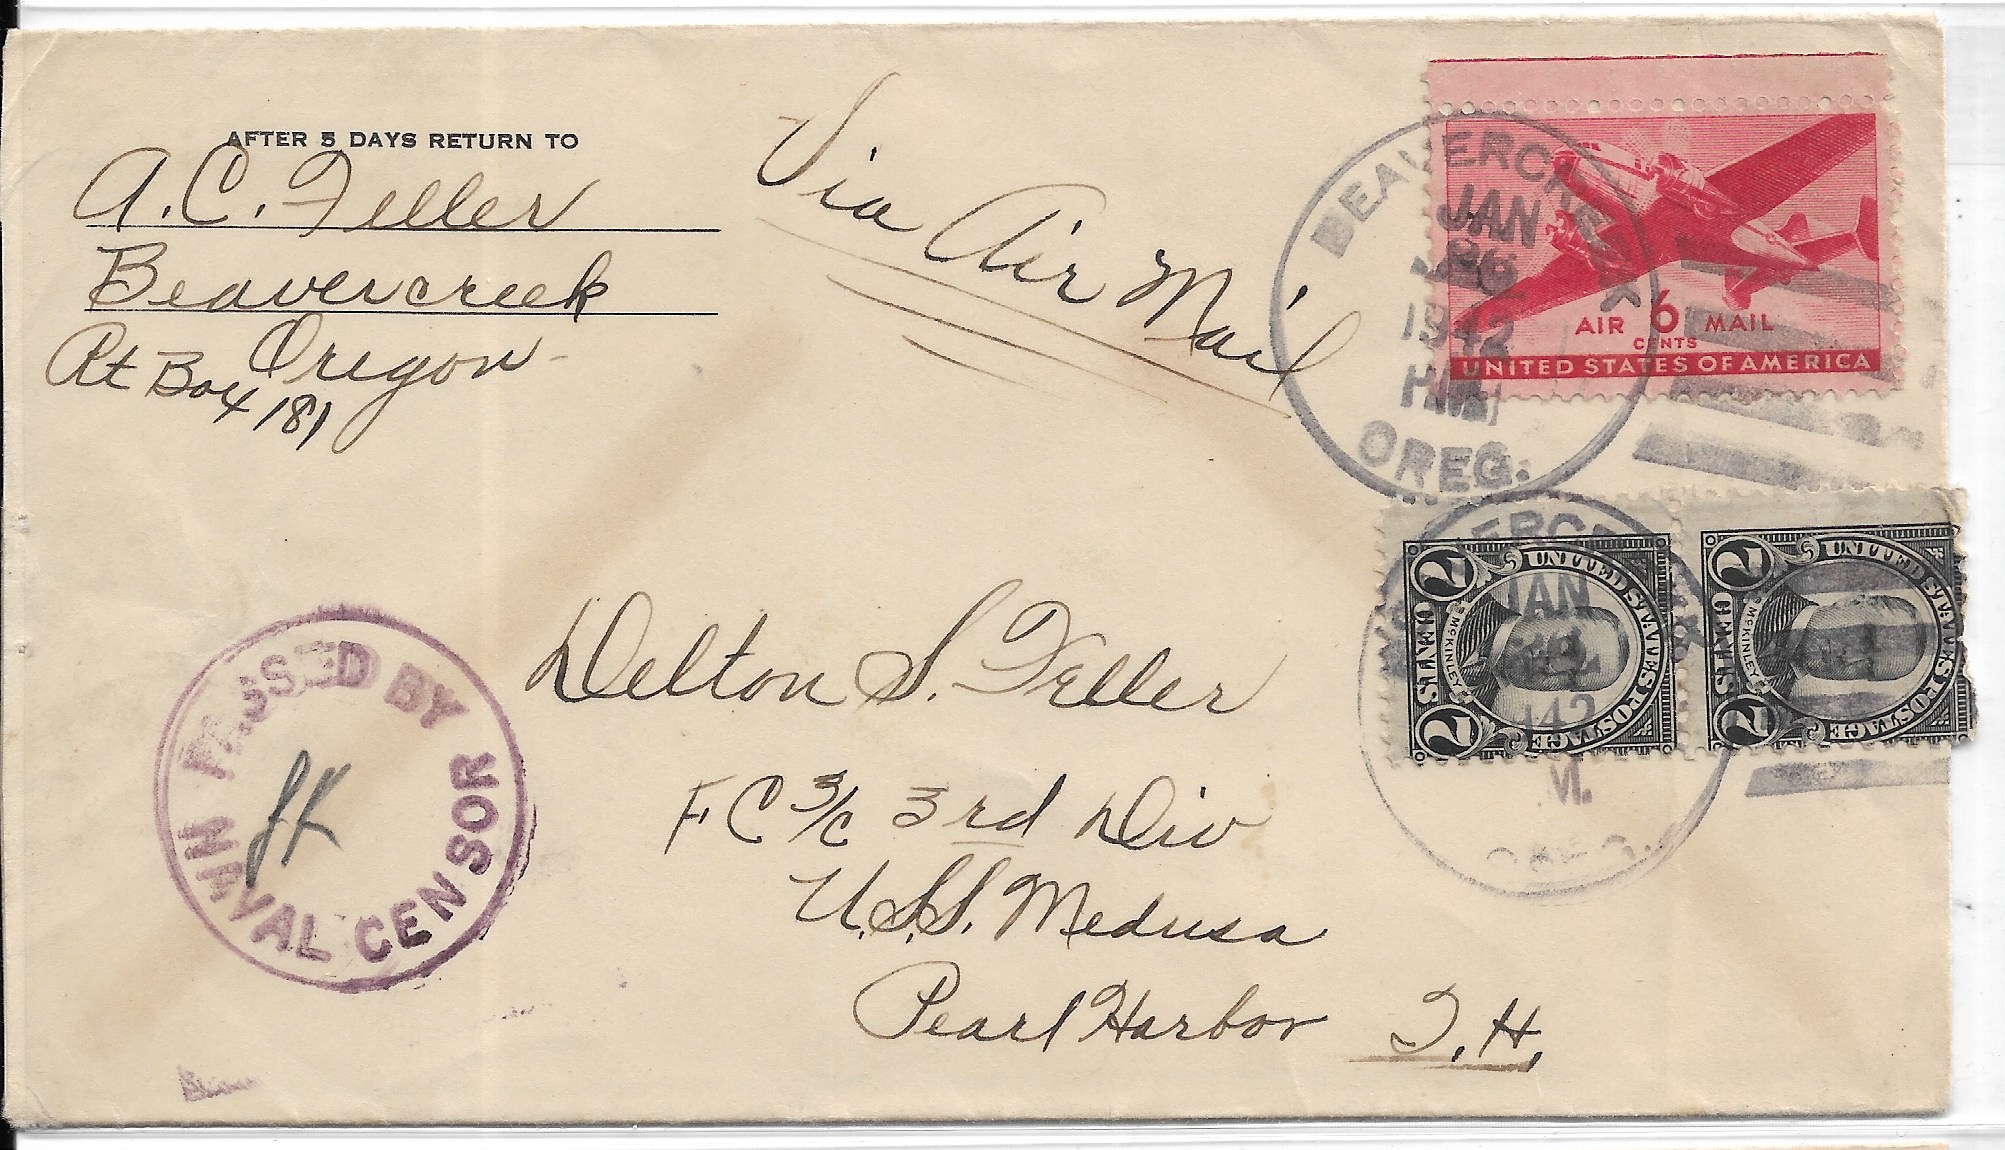 AFTER 5 DAYS RETURN TO
A. C. Feller
Beavercreek
Oregon
Rt Box 181
Via Air Mail
BEAVERCREEK
JAN
26
1942
OREG.
AIR 6 MAIL
CENTS
UNITED STATES OF AMERICA
JAN
M.
OREG.
UNITED STATES POSTAGE
McKINLEY
7 CENTS 7
UNITED STATES POSTAGE
McKINLEY
7 CENTS 7
PASSED BY
NAVAL CENSOR
Delton S. Feller
F C 3/c 3rd Div
U.S.S. Medusa
Pearl Harbor T.H.